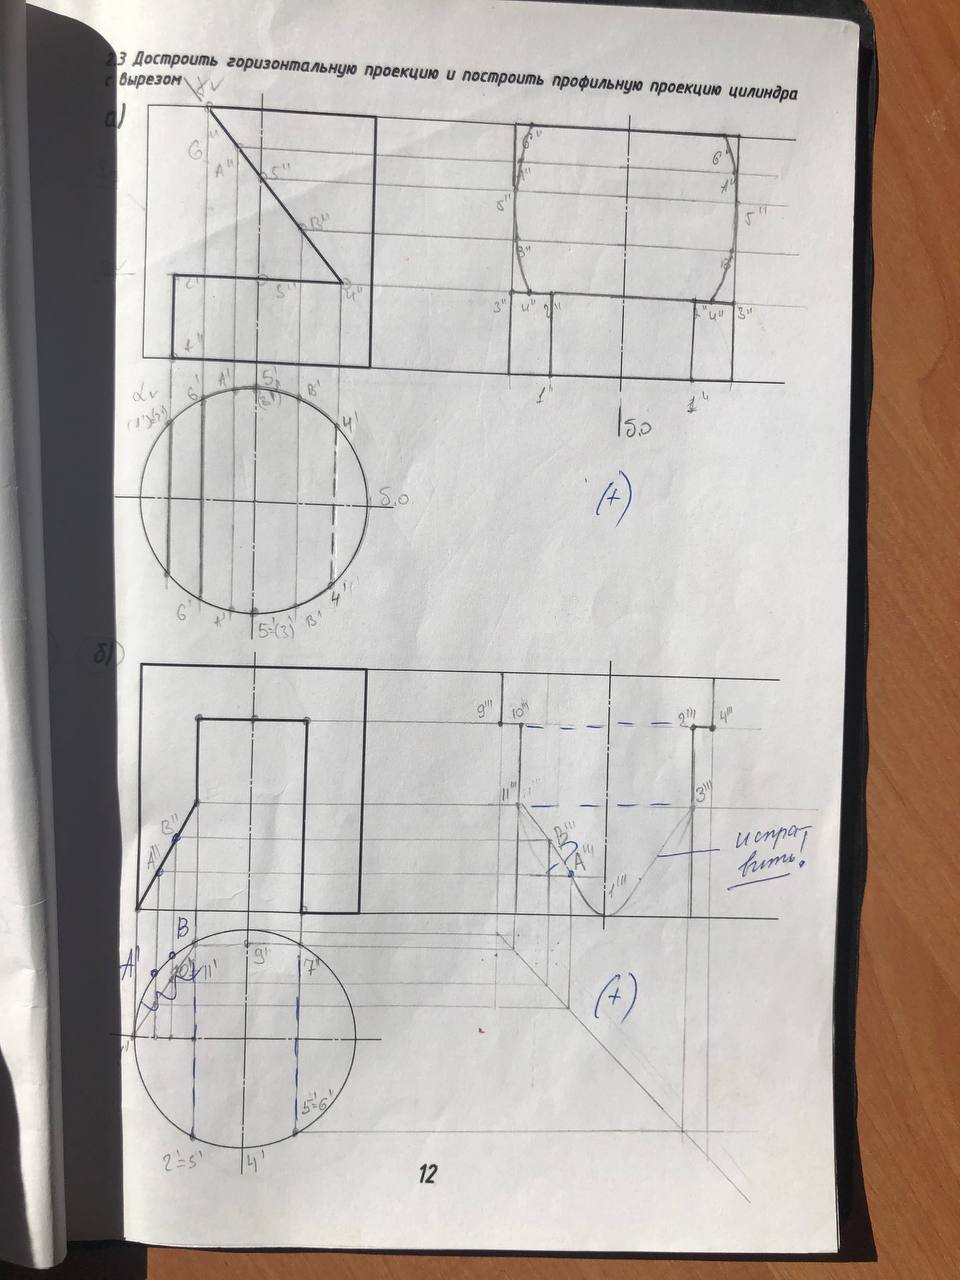 2.3 Достроить горизонтальную проекцию и построить профильную проекцию цилиндра
с вырезом
а)
αv
6''
6'' 6''
A''
5''
A'' A''
5'' 5''
B''
B'' B''
2'' 3'' 4''
3'' 4'' 2'' 2'' 4'' 3''
1''
1'' 1''
αv
6' A' 5' B'
(3')
4'
δ.о
δ.о.
(+)
6' A' 5'=(3') B' 4'
б)
9''' 10''' 2''' 4'''
11''' 3'''
B''
B'''
A''
A'''
1'''
испра-
вить!
B
A'
10' 11' 9' 7'
(+)
5'=6'
2'=3' 4'
12